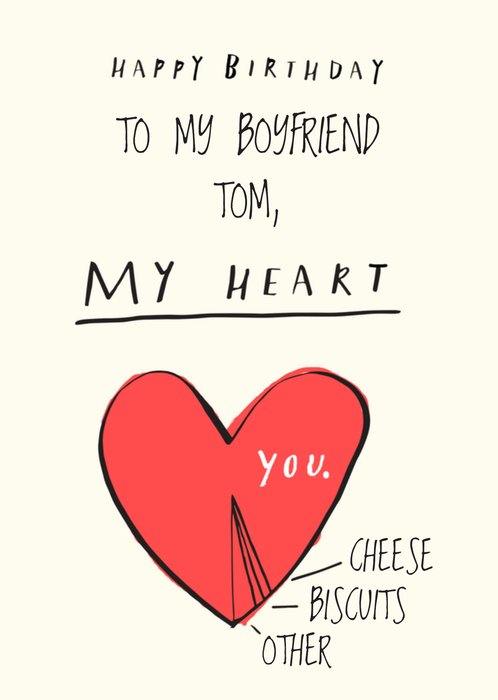 HAPPY BIRTHDAY
TO MY BOYFRIEND
TOM,
MY HEART
YOU.
CHEESE
BISCUITS
OTHER